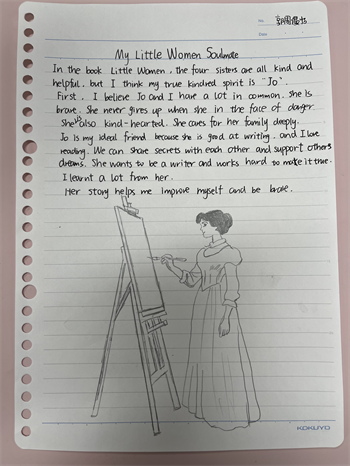 No.
Date
My Little Women Soulmate
In the book Little Women, the four sisters are all kind and
helpful. but I think my true kindred spirit is "Jo".
First, I believe Jo and I have a lot in common. She is
brave. She never gives up when she in the face of danger.
She is also kind-hearted. She cares for her family deeply.
Jo is my ideal friend because she is good at writing. and I love
reading. We can share secrets with each other and support others
dreams. She wants to be a writer and works hard to make it true.
I learnt a lot from her.
Her story helps me improve myself and be brave.
KOKUYO